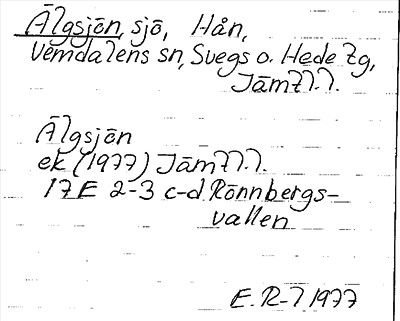 Älgsjön, sjö, Hån,
Vemdalens sn, Svegs o. Hede tg,
Jämtl.l.
Älgsjön
ek (1977) Jämtl.l.
17E 2-3 c-d Rönnbergs-
vallen
E.R-7 1977